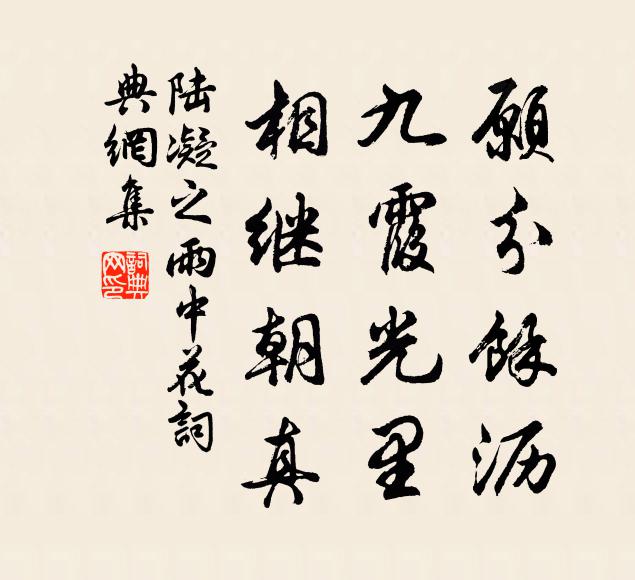 願分餘沥
九霞光里
相继朝真
陆凝之雨中花詞
典網集
詞典網印